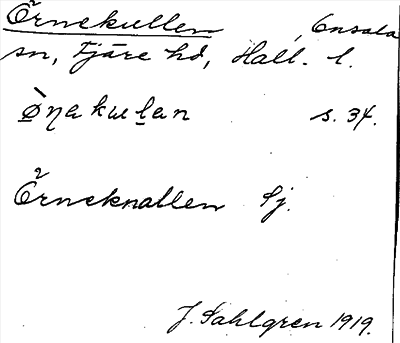 Örnekullen, Onsala
sn, Fjäre hd, Hall. l.
Ö̀ŋakuḻan s. 34.
Örneknallen Sj.
J. Sahlgren 1919.